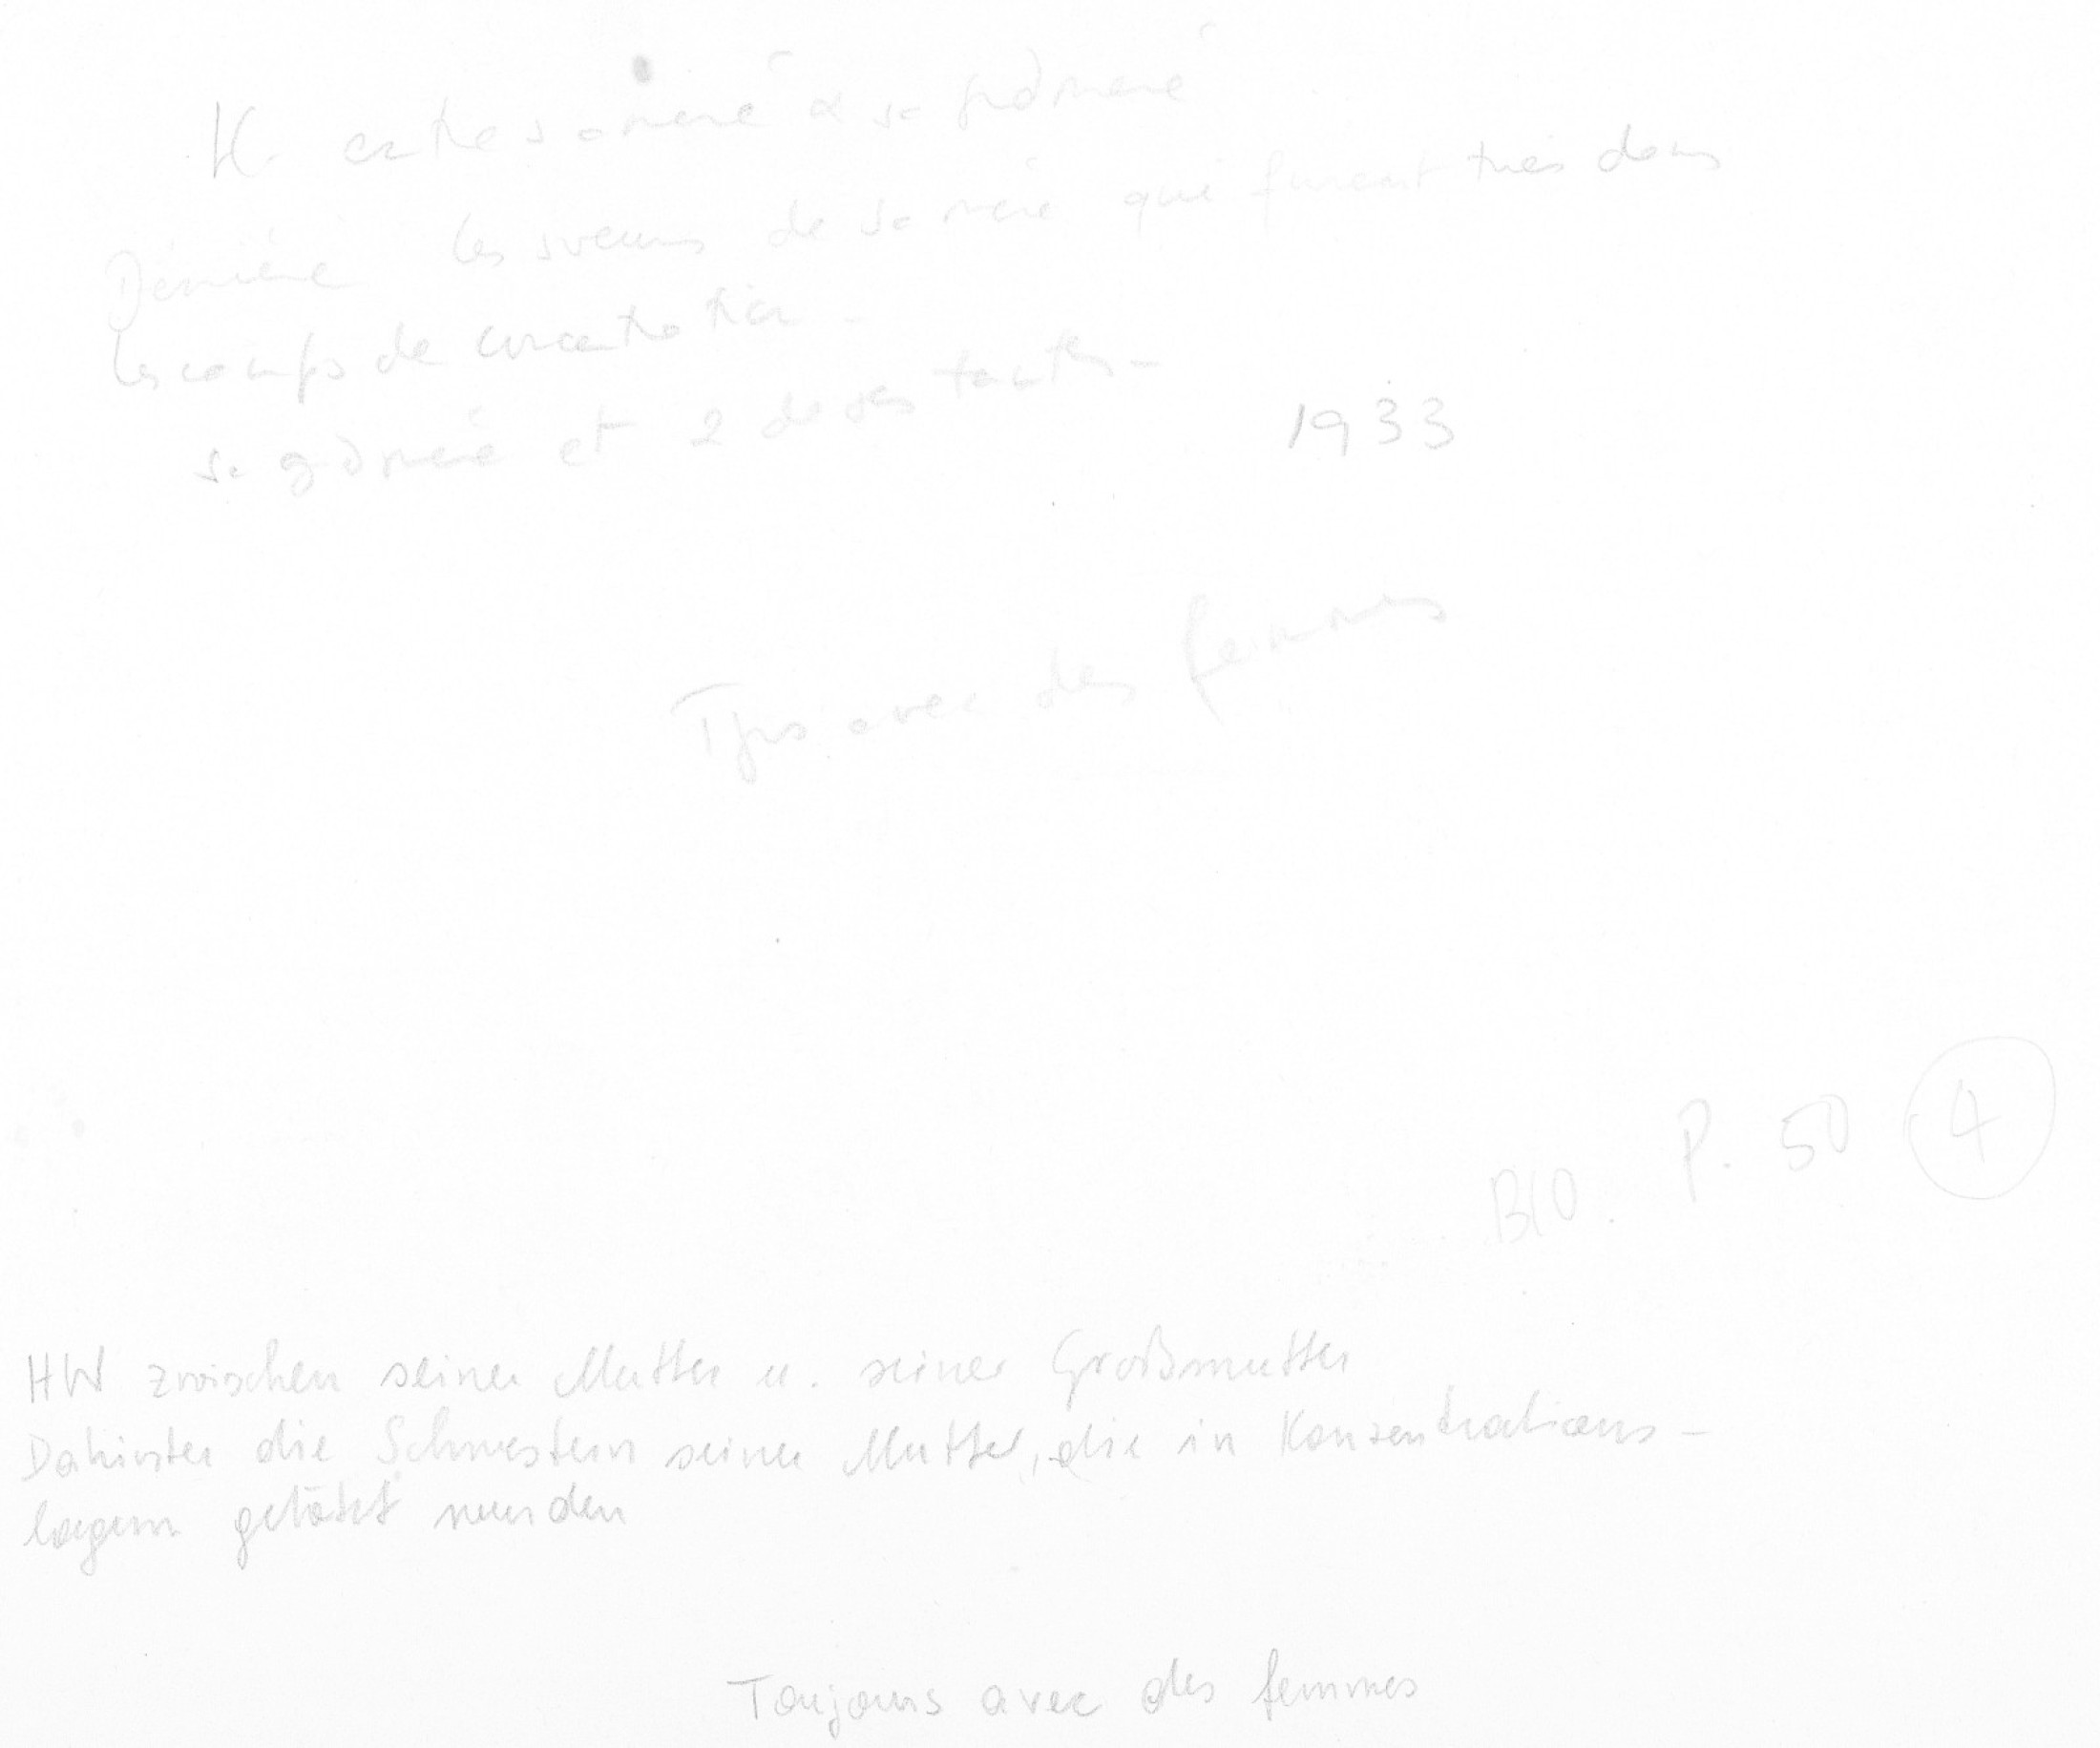 H. entre sa mère & sa gdmère
Derrière les soeurs de sa mère qui furent tués dans
les camps de concentration -
sa gdmère et 2 de ses tantes -
1933
Tjrs avec des femmes
BIO. P. 50 4
HW zwischen seiner Mutter u. seiner Großmutter
Dahinter die Schwestern seiner Mutter, die in Konzentrations-
lagern getötet wurden
Toujours avec des femmes